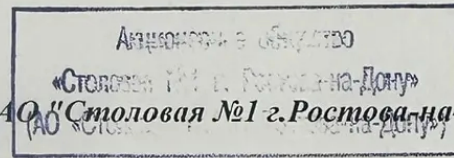 Акционерное общество
«Столовая №1 г. Ростова-на-Дону»
АО "Столовая №1 г.Ростова-на-
(АО «Столовая -на-Дону»)